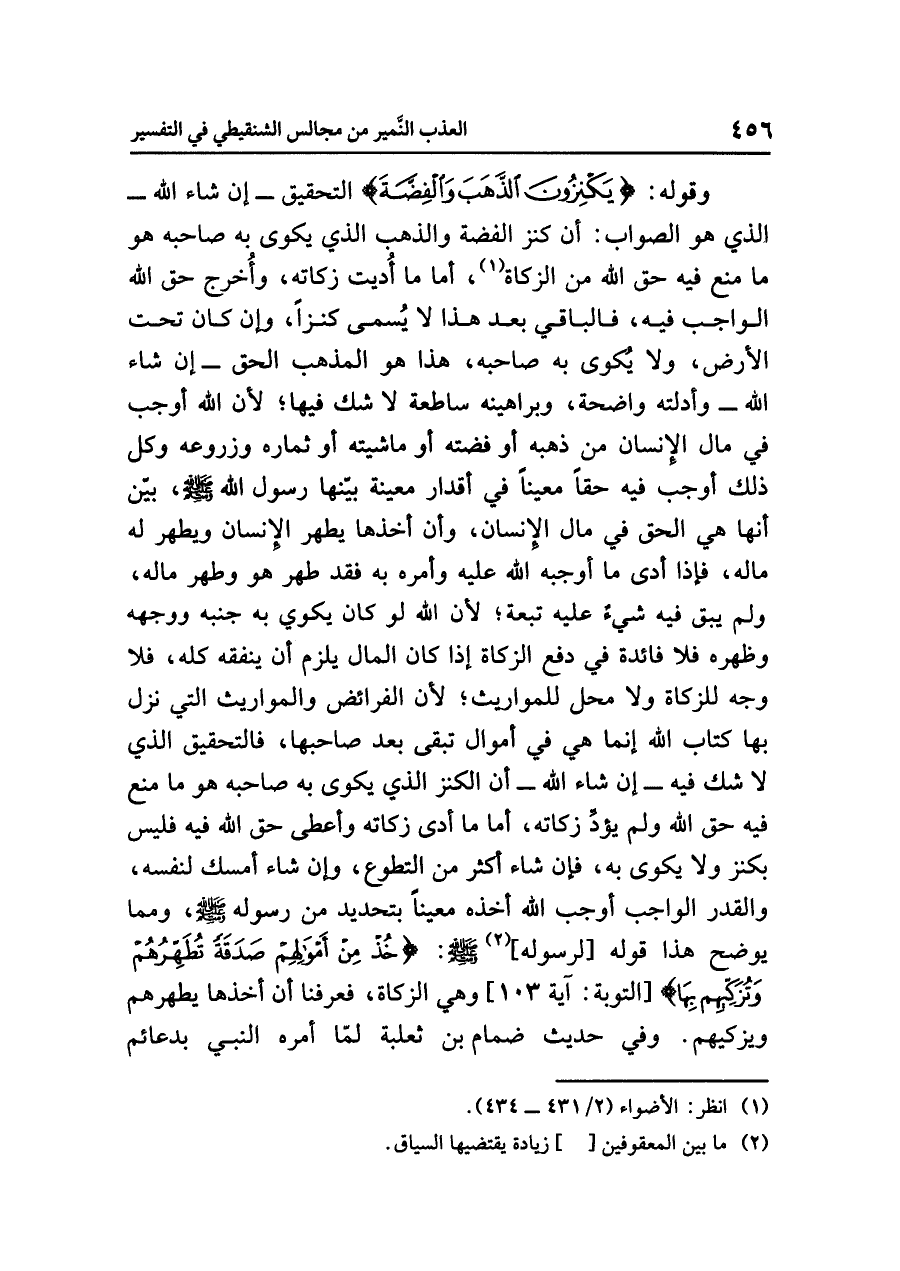 ٤٥٦ العذب النَّمير من مجالس الشنقيطي في التفسير
وقوله: ﴿يَكْنِزُونَ ٱلذَّهَبَ وَٱلْفِضَّةَ﴾ التحقيق ـ إن شاء الله ـ
الذي هو الصواب: أن كنز الفضة والذهب الذي يكوى به صاحبه هو
ما منع فيه حق الله من الزكاة(١)، أما ما أُديت زكاته، وأُخرج حق الله
الواجب فيه، فالباقي بعد هذا لا يُسمى كنزاً، وإن كان تحت
الأرض، ولا يُكوى به صاحبه، هذا هو المذهب الحق ـ إن شاء
الله ـ وأدلته واضحة، وبراهينه ساطعة لا شك فيها؛ لأن الله أوجب
في مال الإنسان من ذهبه أو فضته أو ماشيته أو ثماره وزروعه وكل
ذلك أوجب فيه حقاً معيناً في أقدار معينة بيّنها رسول الله ﷺ، بيّن
أنها هي الحق في مال الإنسان، وأن أخذها يطهر الإنسان ويطهر له
ماله، فإذا أدى ما أوجبه الله عليه وأمره به فقد طهر هو وطهر ماله،
ولم يبق فيه شيءٌ عليه تبعة؛ لأن الله لو كان يكوي به جنبه ووجهه
وظهره فلا فائدة في دفع الزكاة إذا كان المال يلزم أن ينفقه كله، فلا
وجه للزكاة ولا محل للمواريث؛ لأن الفرائض والمواريث التي نزل
بها كتاب الله إنما هي في أموال تبقى بعد صاحبها، فالتحقيق الذي
لا شك فيه ـ إن شاء الله ـ أن الكنز الذي يكوى به صاحبه هو ما منع
فيه حق الله ولم يؤدِّ زكاته، أما ما أدى زكاته وأعطى حق الله فيه فليس
بكنز ولا يكوى به، فإن شاء أكثر من التطوع، وإن شاء أمسك لنفسه،
والقدر الواجب أوجب الله أخذه معيناً بتحديد من رسوله ﷺ، ومما
يوضح هذا قوله [لرسوله](٢) ﷺ: ﴿خُذْ مِنْ أَمْوَٰلِهِمْ صَدَقَةً تُطَهِّرُهُمْ
وَتُزَكِّيهِم بِهَا﴾ [التوبة: آية ١٠٣] وهي الزكاة، فعرفنا أن أخذها يطهرهم
ويزكيهم. وفي حديث ضمام بن ثعلبة لمّا أمره النبي بدعائم
(١) انظر: الأضواء (٢/ ٤٣١ ـ ٤٣٤).
(٢) ما بين المعقوفين [ ] زيادة يقتضيها السياق.